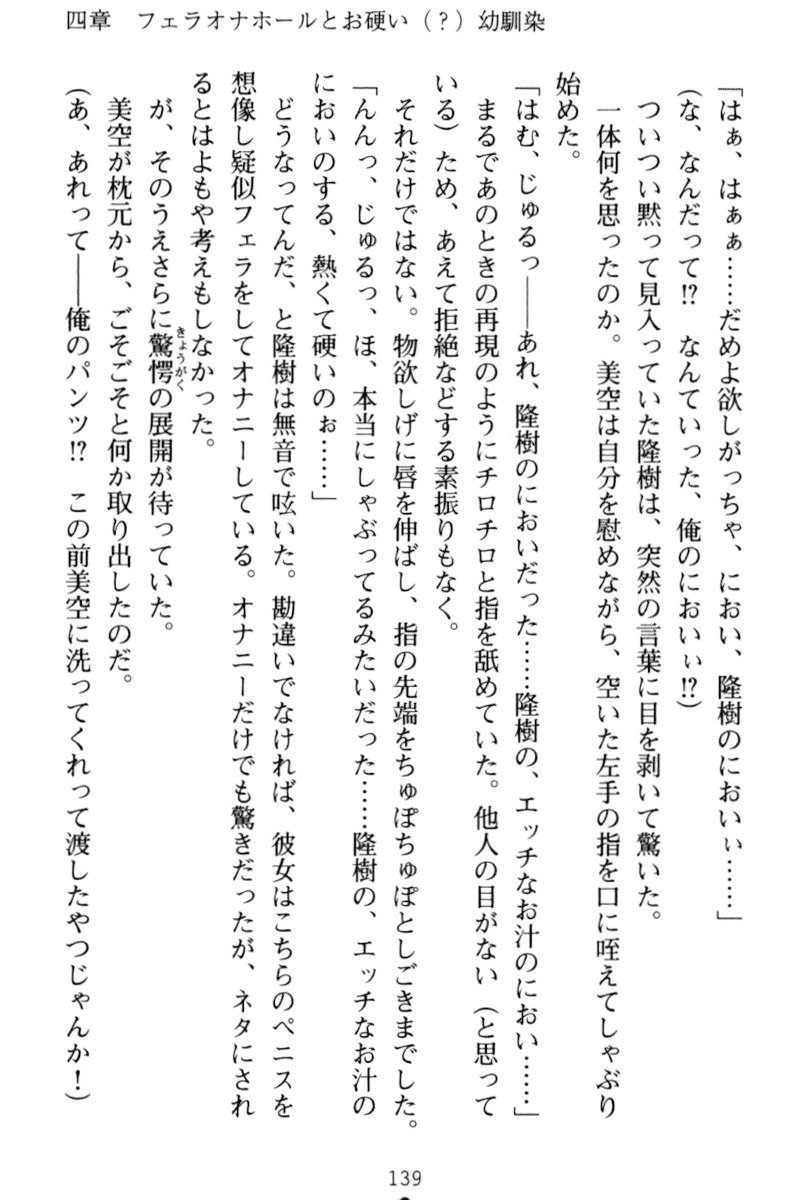 四章　フェラオナホールとお硬い（？）幼馴染
「はぁ、はぁぁ……だめよ欲しがっちゃ、におい、隆樹のにおいぃ……」
（な、なんだって⁉　なんていった、俺のにおいぃ⁉）
ついつい黙って見入っていた隆樹は、突然の言葉に目を剥いて驚いた。
一体何を思ったのか。美空は自分を慰めながら、空いた左手の指を口に咥えてしゃぶり
始めた。
「はむ、じゅるっ――あれ、隆樹のにおいだった……隆樹の、エッチなお汁のにおい……」
まるであのときの再現のようにチロチロと指を舐めていた。他人の目がない（と思って
いる）ため、あえて拒絶などする素振りもなく。
それだけではない。物欲しげに唇を伸ばし、指の先端をちゅぽちゅぽとしごきまでした。
「んんっ、じゅるっ、ほ、本当にしゃぶってるみたいだった……隆樹の、エッチなお汁の
においのする、熱くて硬いのぉ……」
どうなってんだ、と隆樹は無音で呟いた。勘違いでなければ、彼女はこちらのペニスを
想像し疑似フェラをしてオナニーしている。オナニーだけでも驚きだったが、ネタにされ
るとはよもや考えもしなかった。
が、そのうえさらに驚愕きょうがくの展開が待っていた。
美空が枕元から、ごそごそと何か取り出したのだ。
（あ、あれって――俺のパンツ⁉　この前美空に洗ってくれって渡したやつじゃんか！）
139